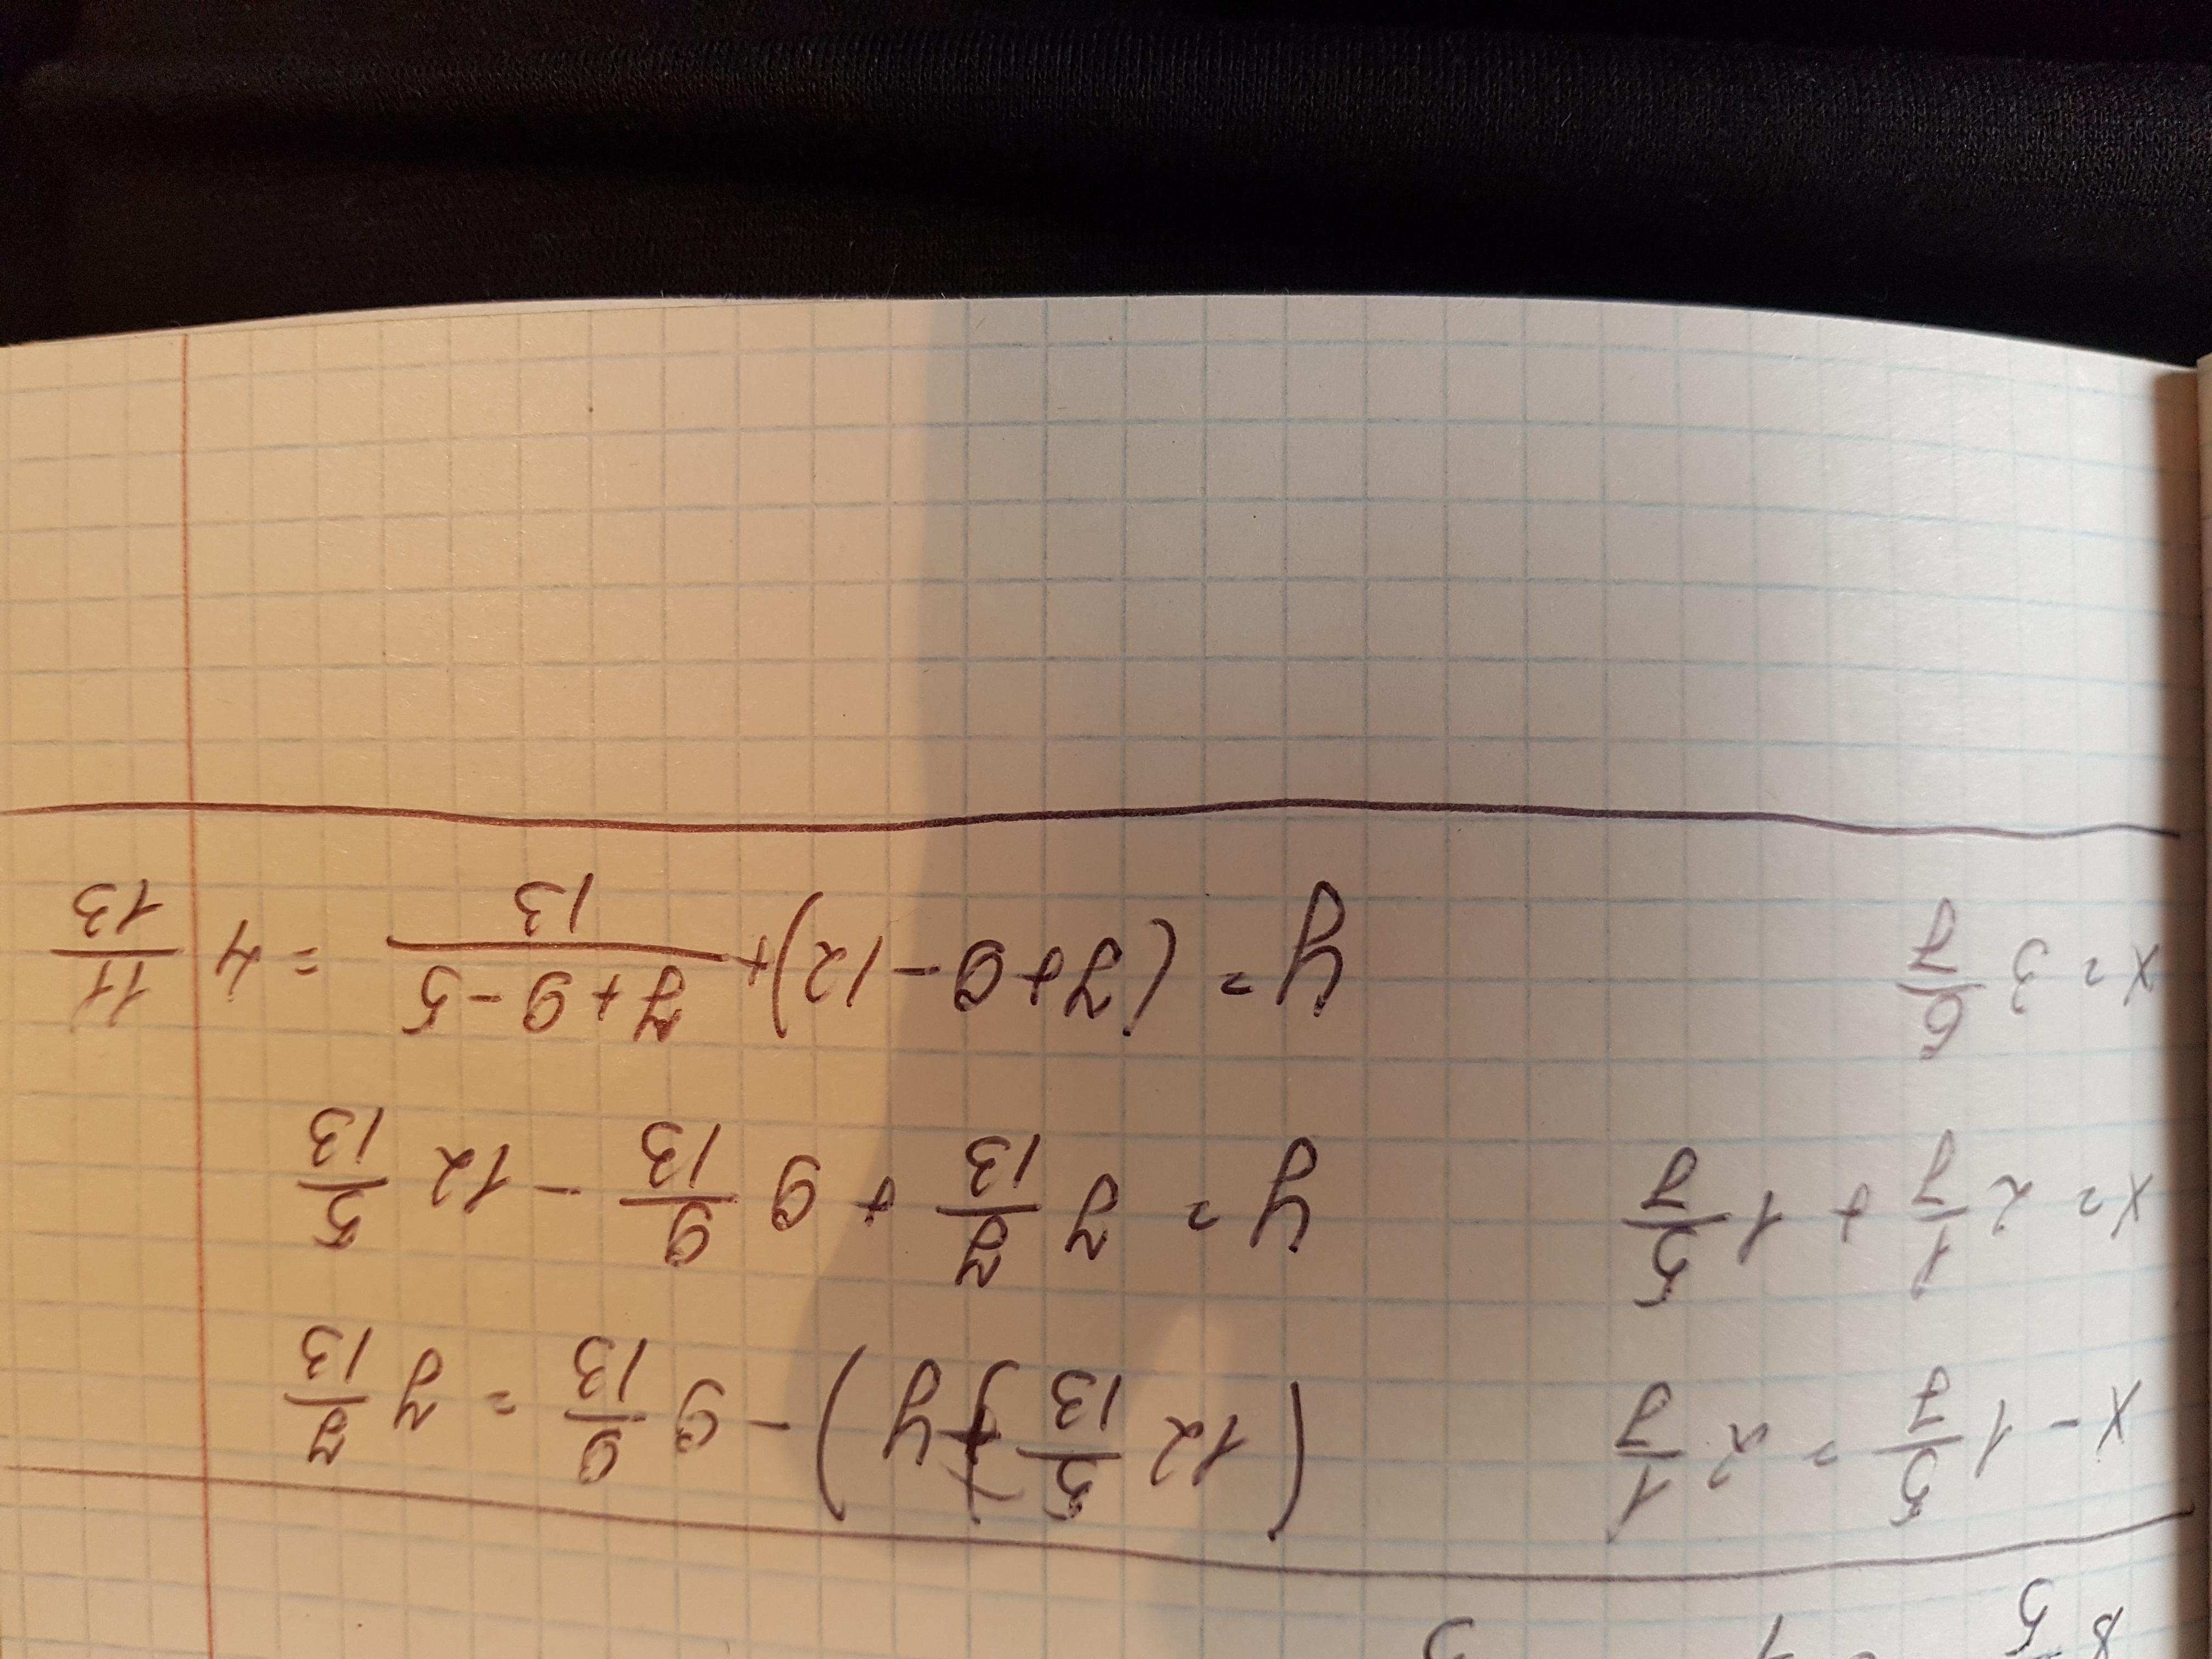 x - 1 5/7 = 2 1/7
x = 2 1/7 + 1 5/7
x = 3 6/7
(12 5/13 + y) - 9 9/13 = 7 7/13
y = 7 7/13 + 9 9/13 - 12 5/13
y = (7 + 9 - 12) + (7 + 9 - 5)/13 = 4 11/13